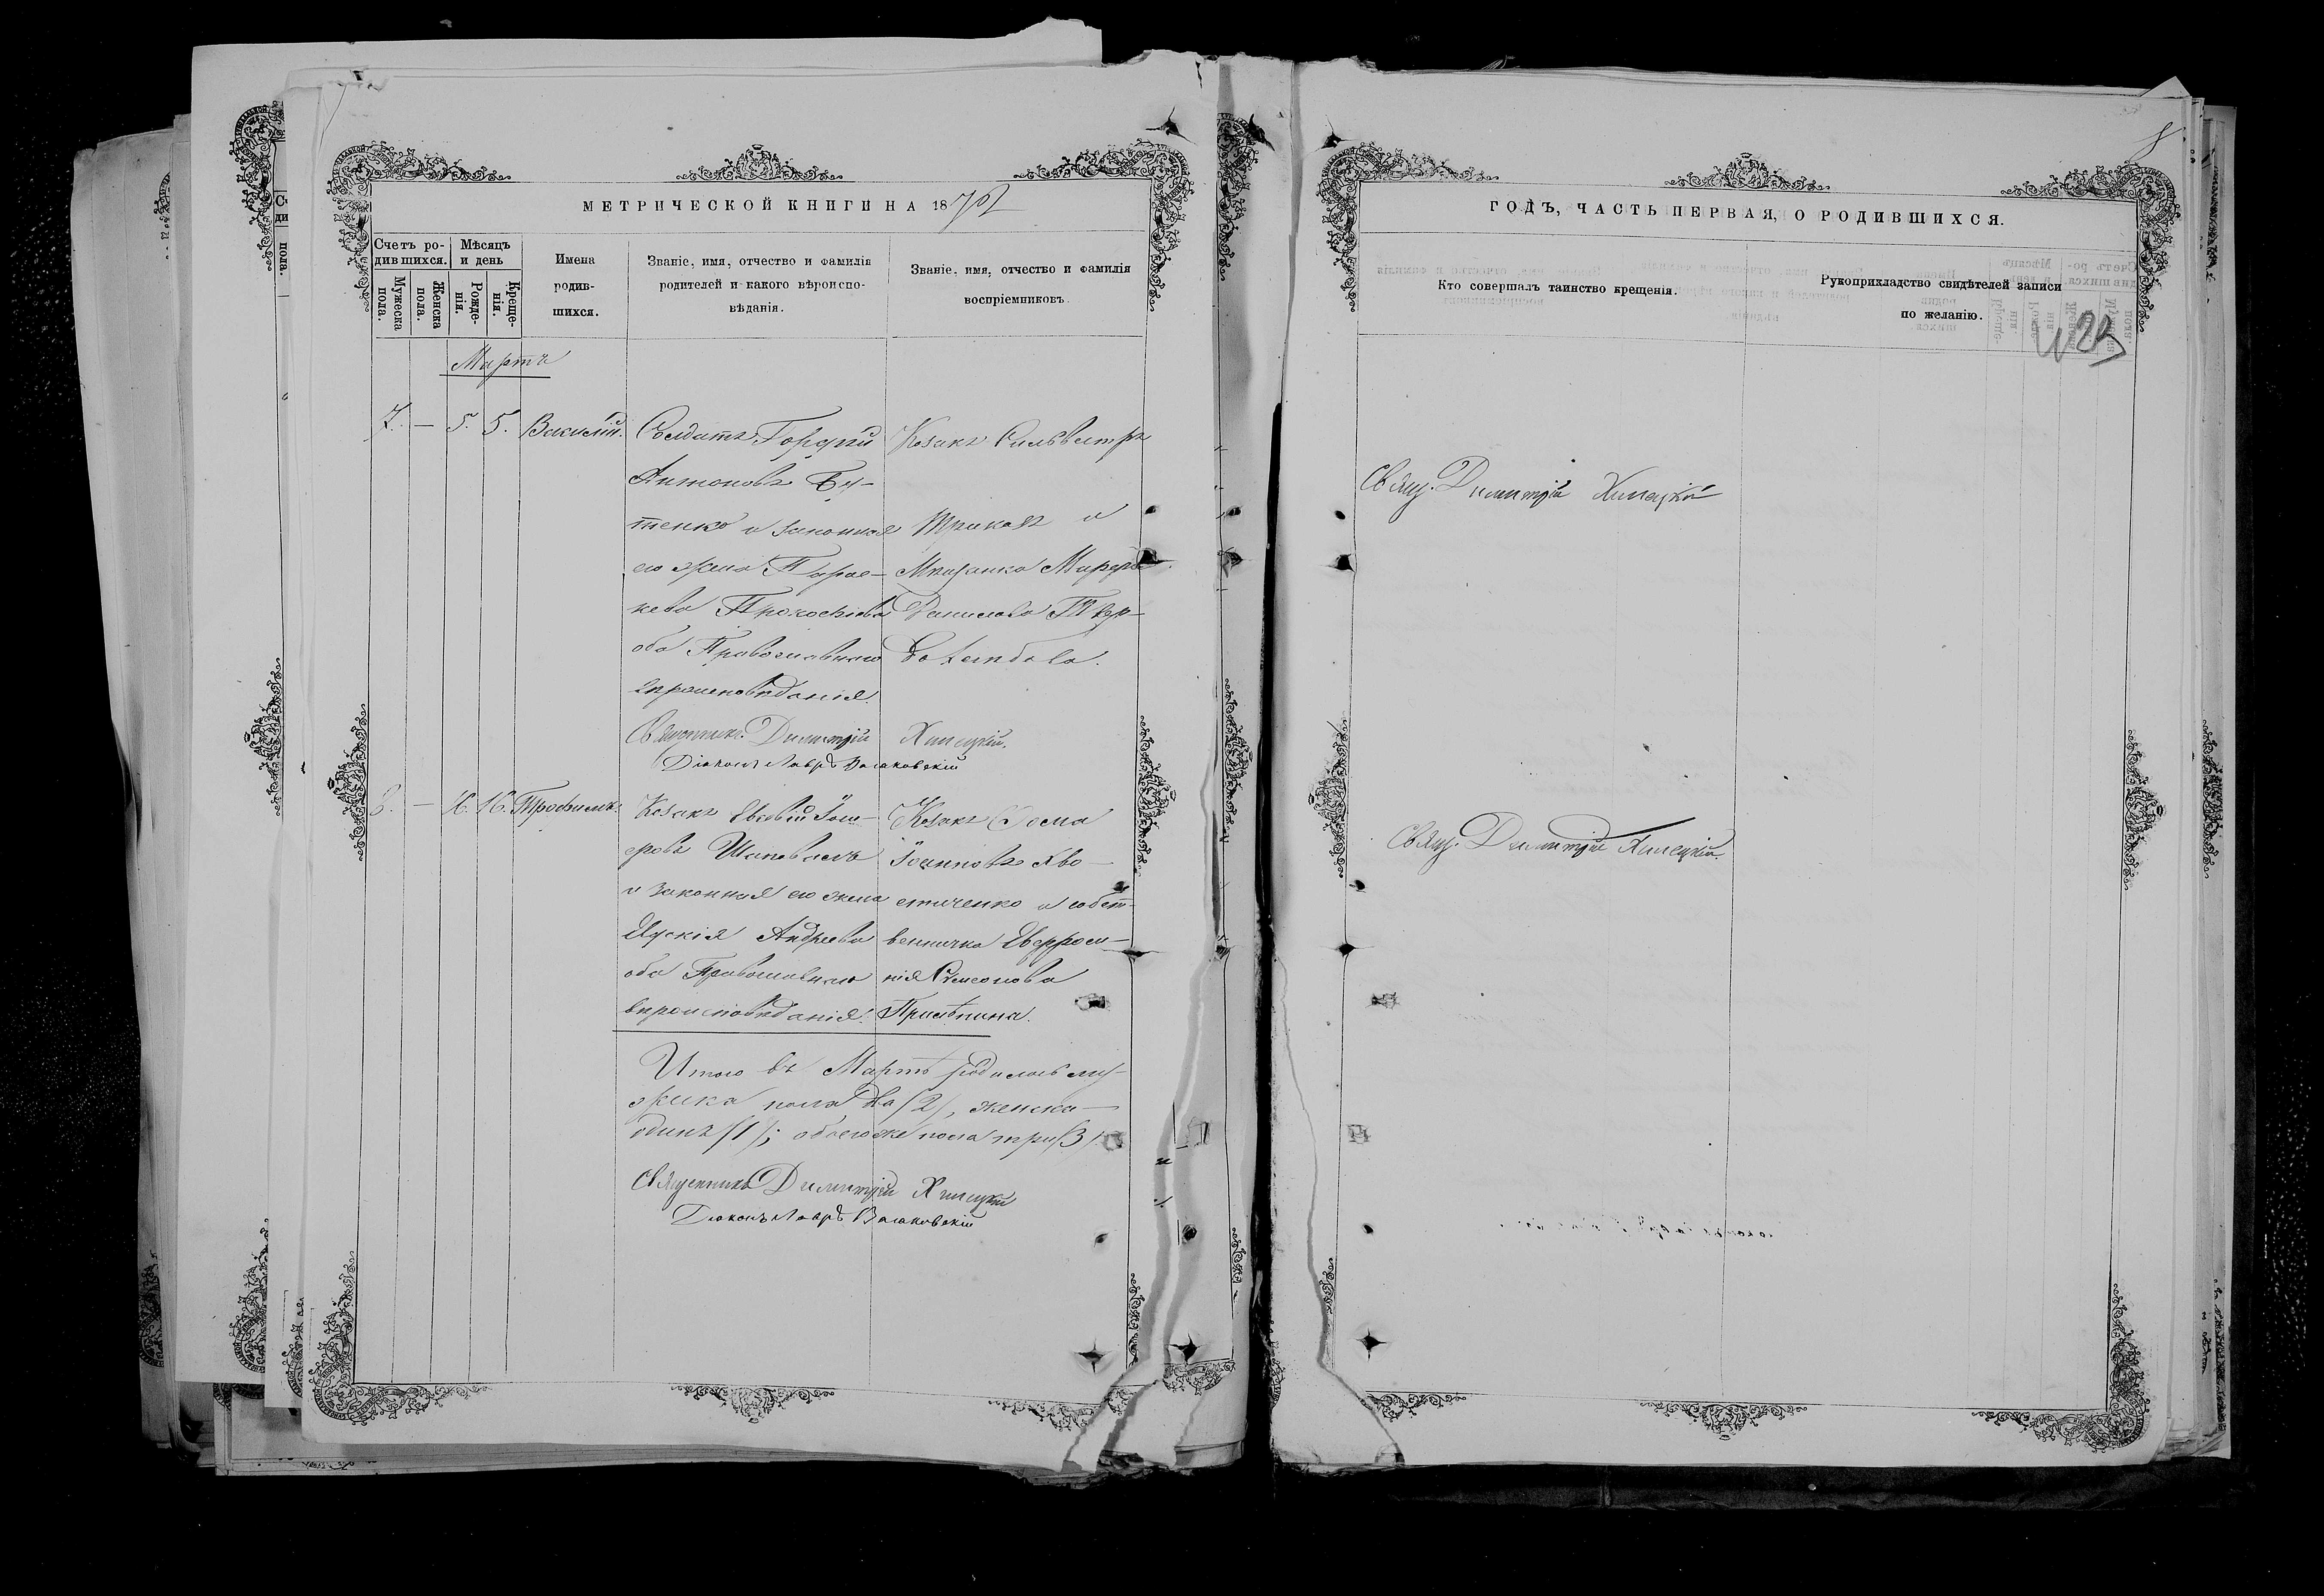 МЕТРИЧЕСКОЙ КНИГИ НА 18
Счетъ ро-
дившихся.
Мѣсяцъ
и день
Мужеска
пола.
Женска
пола.
Рожде-
нія.
Креще-
нія.
Имена
родив-
шихся.
Званіе, имя, отчество и фамилія
родителей и какого вѣроиспо-
вѣданія.
Званіе, имя, отчество и фамилія
воспріемниковъ.
Мартъ
7. — 5. 5. Василій.
Солдатъ Георгій
Антоновъ Бу-
тенко и законная
его жена Парас-
кева Прокофіева
оба Православнаго
вѣроисповѣданія.
Козакъ Сильвестръ
и
Данилова
Священникъ Димитрій Хилецкій.
Діаконъ Лавръ
8. — 16. 16. Трофимъ.
Козакъ Евсевій Іоси-
фовъ Шаповалъ
и законная его жена
Андреева
оба Православнаго
вѣроисповѣданія.
Козакъ Ѳома
Іоанновъ Яво-
и собст-
венничка Евфроси-
нія Симеонова
Итого въ Мартѣ родилось му-
жеска пола два (2), женска —
одинъ (1); обоего же пола три (3).
Священникъ Димитрій Хилецкій
Діаконъ Лавръ
8
ГОДЪ, ЧАСТЬ ПЕРВАЯ, О РОДИВШИХСЯ.
Кто совершалъ таинство крещенія.
Рукоприкладство свидѣтелей записи
по желанію.
Свящ. Димитрій Хилецкій
Свящ. Димитрій Хилецкій.